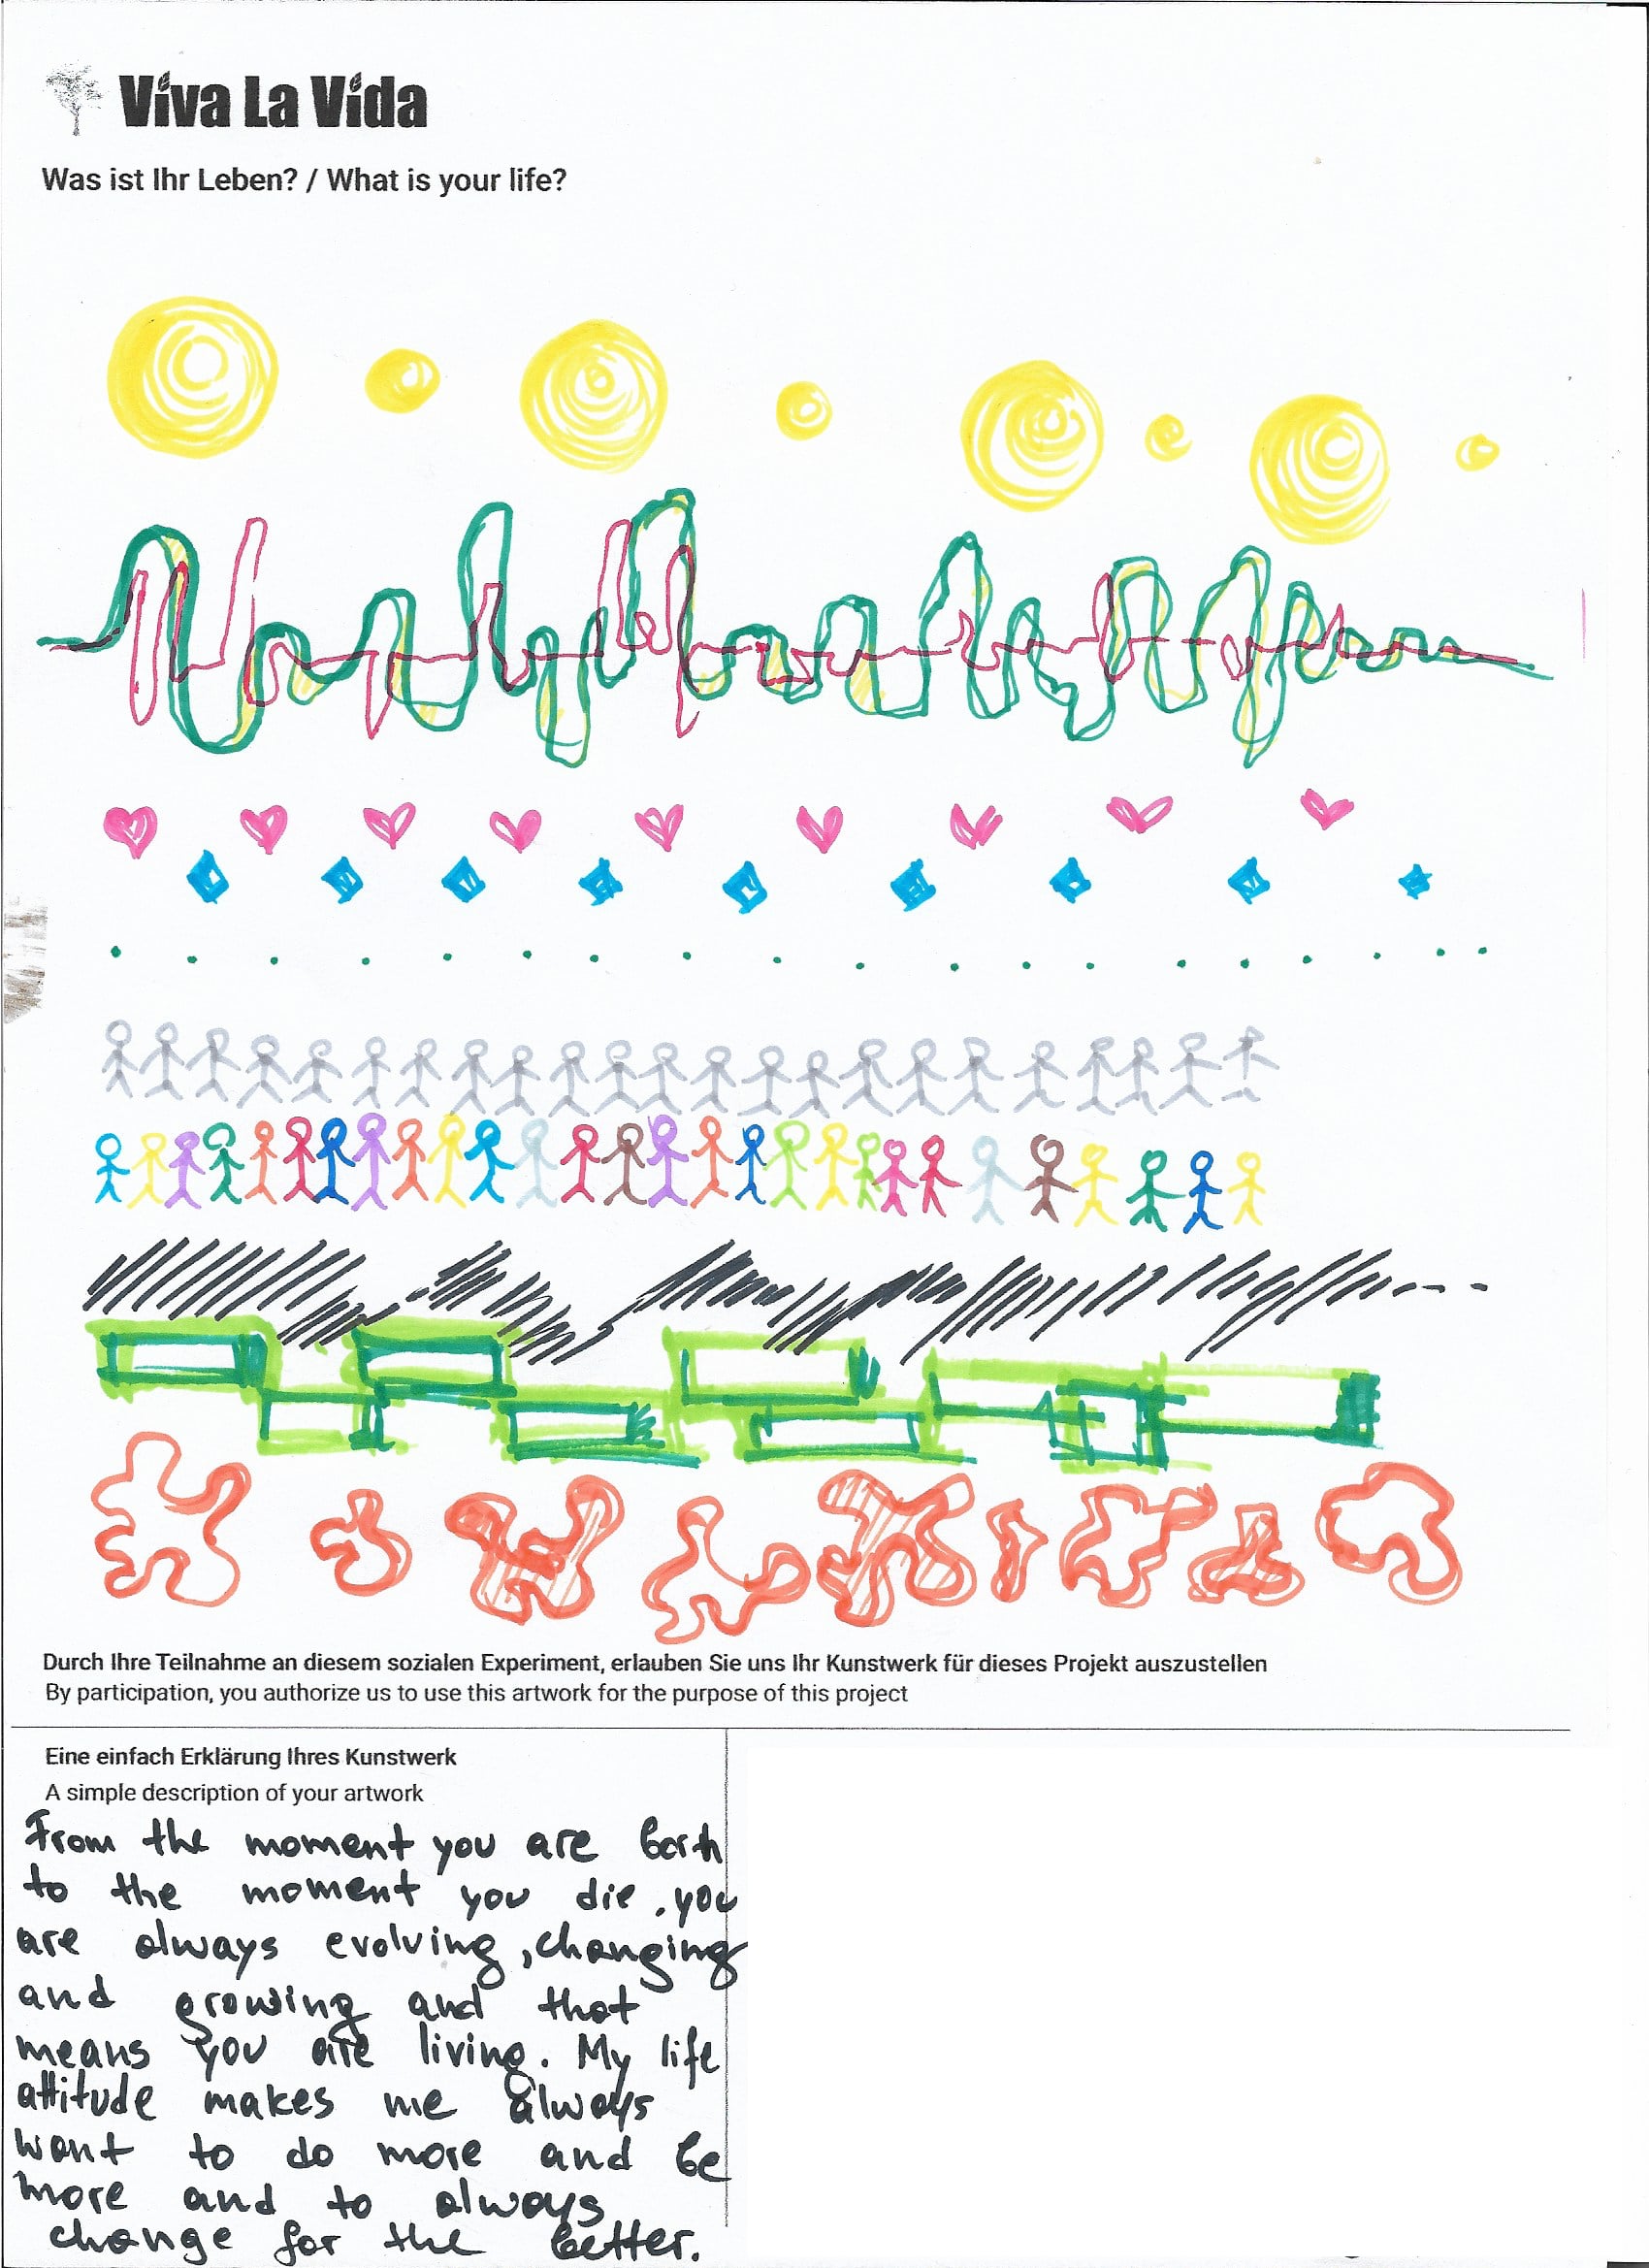 Viva La Vida
Was ist Ihr Leben? / What is your life?
Durch Ihre Teilnahme an diesem sozialen Experiment, erlauben Sie uns Ihr Kunstwerk für dieses Projekt auszustellen
By participation, you authorize us to use this artwork for the purpose of this project
Eine einfach Erklärung Ihres Kunstwerk
A simple description of your artwork
From the moment you are born
to the moment you die, you
are always evolving, changing
and growing and that
means you are living. My life
attitude makes me always
want to do more and be
more and to always
change for the better.